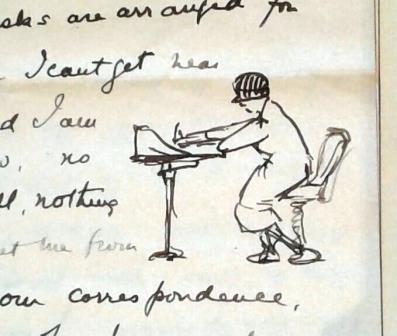 asks are arranged for
I cant get near
d I am
no
ll, nothing
et me from
our correspondence,